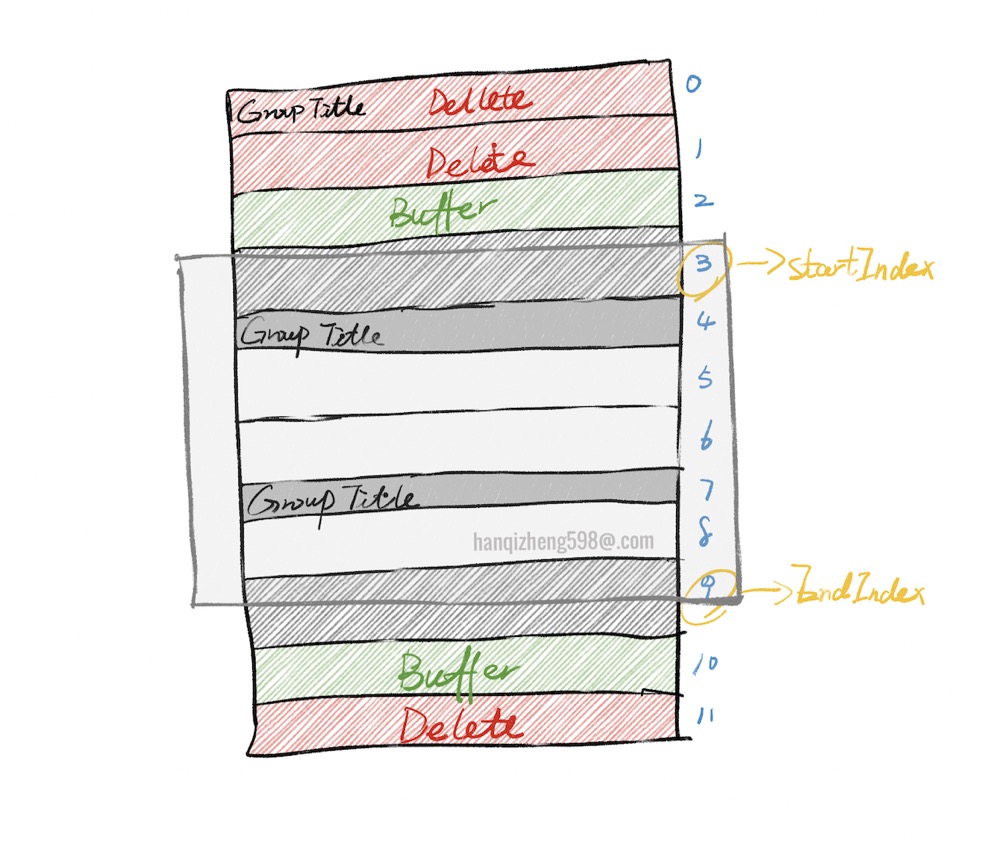 Group Title Dellete 0
Delete 1
Buffer 2
3 startIndex
Group Title 4
5
6
Group Title 7
hanqizheng598@.com 8
9 EndIndex
Buffer 10
Delete 11